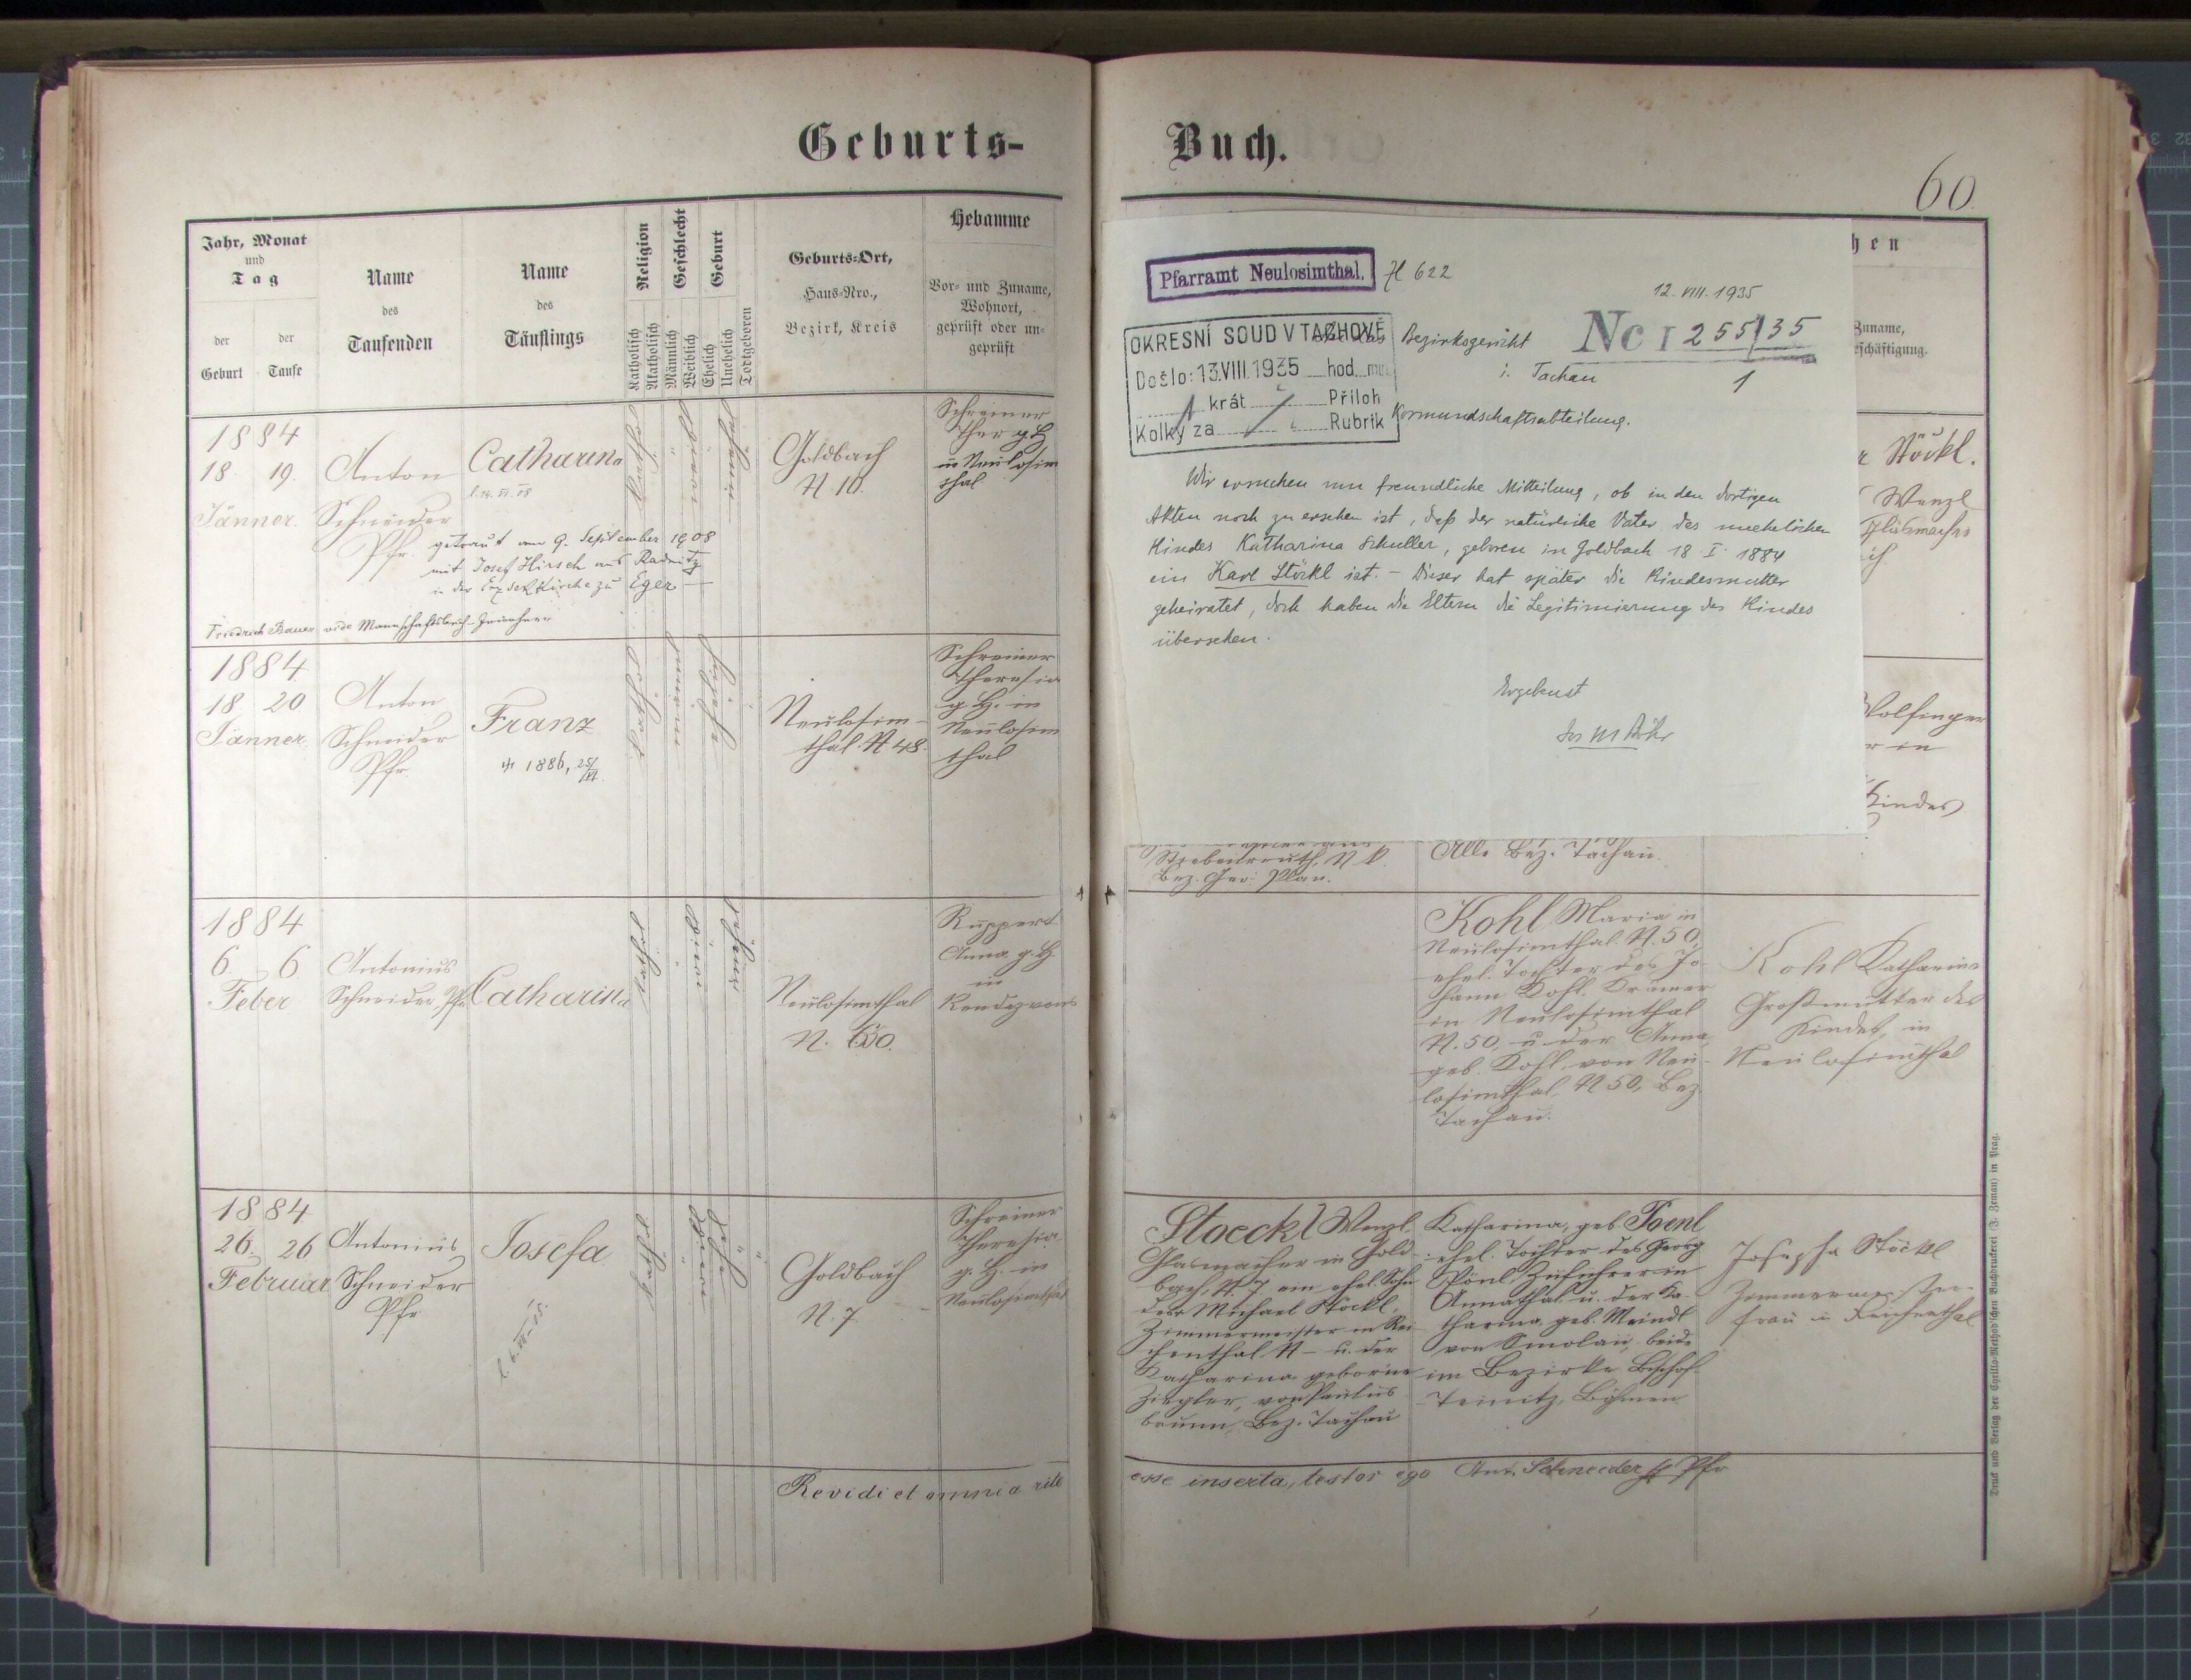 Geburts-
Jahr, Monat
und
Tag
der
Geburt
der
Taufe
Name
des
Taufenden
Name
des
Täuflings
Religion
Katholisch
Akatholisch
Geschlecht
Männlich
Weiblich
Geburt
Ehelich
Unehelich
Todtgeboren
Geburts-Ort,
Haus-Nro.,
Bezirk, Kreis
Hebamme
Vor- und Zuname,
Wohnort,
geprüft oder un-
geprüft
1884
18. 19.
Jänner.
Anton
Schneider
Pfr.
Catharina
getraut am 9. September 1908
mit Josef Hirsch aus Radnitz
in der Kirche zu Eger
Friedrich Bauer
Goldbach
N 10.
Schreiner
Ther. g. H.
in Neulosim
thal
1884
18 20
Jänner.
Anton
Schneider
Pfr.
Franz
1886, 25/
Neulosim-
thal. N 48.
Schreiner
Theresia
g. H. in
Neulosim
thal
1884
6. 6
Feber
Antonius
Schneider, Pfr.
Catharina
Neulosimthal
N. 50.
Ruppert
Anna g. H.
in
Rendezvous
1884
26. 26
Februar
Antonius
Schneider
Pfr
Josefa
Goldbach
N. 7
Schreiner
Theresia
g. H. in
Neulosimthal
Revidi et omnia rite
Buch.
60.
hen
Zuname,
eschäftigung.
Stöckl.
Wenzl
Glasmacher
Wolfinger
r in
Kindes
Pfarramt Neulosimthal.
N 622
12. VIII. 1935
OKRESNÍ SOUD V TACHOVĚ
Došlo: 13.VIII.1935 hod. min.
1 krát Příloh
Kolky za Rubrik
An das Bezirksgericht
i. Tachau
Nc I 255/35
1
Vormundschaftsabteilung.
Wir ersuchen um freundliche Mitteilung, ob in den dortigen
Akten noch zu ersehen ist, daß der natürliche Vater des unehelichen
Kindes Katharina Schuller, geboren in Goldbach 18. I. 1884
ein Karl Stöckl ist. – Dieser hat später die Kindesmutter
geheiratet, doch haben die Eltern die Legitimierung des Kindes
übersehen.
Ergebenst
Strebenreuth, N
Bez. Ger. Plan.
Alle Bez. Tachau.
Kohl Maria in
Neulosimthal. N. 50,
ehel. Tochter des Jo-
hann Kohl. Krämer
in Neulosimthal
N. 50, u. der Anna,
geb. Kohl, von Neu-
losimthal, N 50, Bez.
Tachau.
Kohl Katharina
Großmutter des
Kindes, in
Neulosimthal
Stoeckl Wenzl
Glasmacher in Gold-
bach, N. 7 ein ehel. Sohn
des Michael Stöckl,
Zimmermeister in Rei-
chenthal N – u. der
Katharina geborne
Ziegler, von Paulus-
brunn, Bez. Tachau
Katharina, geb. Poenl
ehel. Tochter des Georg
Pönl, in
Annathal u. der Ka-
tharina geb. Meindl
von Smolau, beide
im Bezirke Bischof-
Teinitz, Böhmen
Josepha Stöckl
Zimmermeisters-
frau in Reichenthal
esse inserta, testor ego Ant. Schneider Pfr
Druck und Verlag der Cyrillo-Method'schen Buchdruckerei (J. Zeman) in Prag.